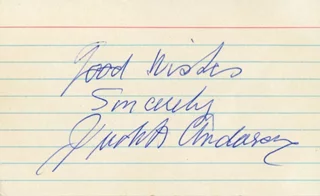 Good Wishes
Sincerely
Judith Anderson